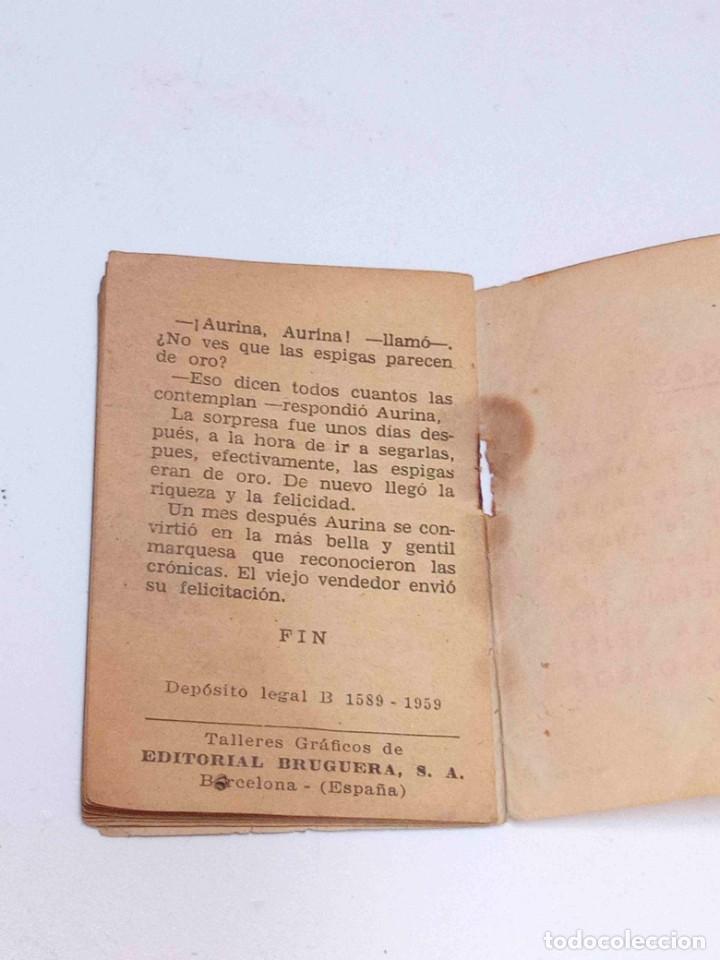 —¡Aurina, Aurina! —llamó—.
¿No ves que las espigas parecen
de oro?
—Eso dicen todos cuantos las
contemplan —respondió Aurina,
La sorpresa fue unos días des-
pués, a la hora de ir a segarlas,
pues, efectivamente, las espigas
eran de oro. De nuevo llegó la
riqueza y la felicidad.
Un mes después Aurina se con-
virtió en la más bella y gentil
marquesa que reconocieron las
crónicas. El viejo vendedor envió
su felicitación.
FIN
Depósito legal B 1589 - 1959
Talleres Gráficos de
EDITORIAL BRUGUERA, S. A.
Barcelona - (España)
todocoleccion